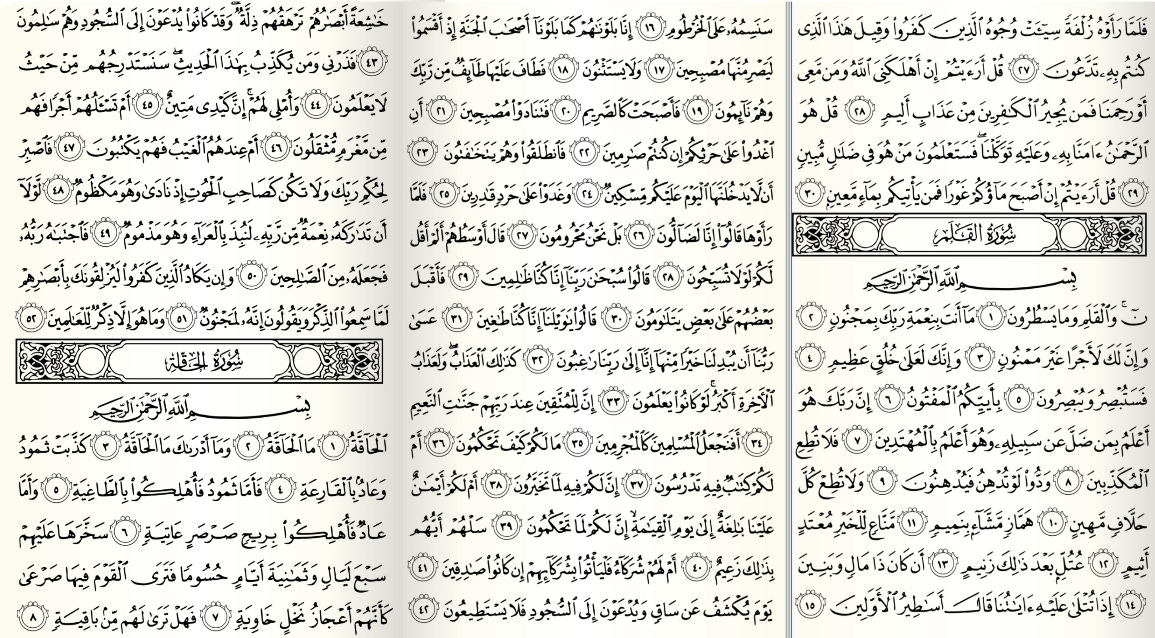 فَلَمَّا رَأَوْهُ زُلْفَةً سِيٓـَٔتْ وُجُوهُ ٱلَّذِينَ كَفَرُوا۟ وَقِيلَ هَٰذَا ٱلَّذِى
كُنتُم بِهِۦ تَدَّعُونَ ٢٧ قُلْ أَرَءَيْتُمْ إِنْ أَهْلَكَنِىَ ٱللَّهُ وَمَن مَّعِىَ
أَوْ رَحِمَنَا فَمَن يُجِيرُ ٱلْكَٰفِرِينَ مِنْ عَذَابٍ أَلِيمٍ ٢٨ قُلْ هُوَ
ٱلرَّحْمَٰنُ ءَامَنَّا بِهِۦ وَعَلَيْهِ تَوَكَّلْنَا ۖ فَسَتَعْلَمُونَ مَنْ هُوَ فِى ضَلَٰلٍ مُّبِينٍ
٢٩ قُلْ أَرَءَيْتُمْ إِنْ أَصْبَحَ مَآؤُكُمْ غَوْرًا فَمَن يَأْتِيكُم بِمَآءٍ مَّعِينٍۭ ٣٠
سُورَةُ القَلَمِ
بِسْمِ ٱللَّهِ ٱلرَّحْمَٰنِ ٱلرَّحِيمِ
نٓ ۚ وَٱلْقَلَمِ وَمَا يَسْطُرُونَ ١ مَآ أَنتَ بِنِعْمَةِ رَبِّكَ بِمَجْنُونٍ ٢
وَإِنَّ لَكَ لَأَجْرًا غَيْرَ مَمْنُونٍ ٣ وَإِنَّكَ لَعَلَىٰ خُلُقٍ عَظِيمٍ ٤
فَسَتُبْصِرُ وَيُبْصِرُونَ ٥ بِأَييِّكُمُ ٱلْمَفْتُونُ ٦ إِنَّ رَبَّكَ هُوَ
أَعْلَمُ بِمَن ضَلَّ عَن سَبِيلِهِۦ وَهُوَ أَعْلَمُ بِٱلْمُهْتَدِينَ ٧ فَلَا تُطِعِ
ٱلْمُكَذِّبِينَ ٨ وَدُّوا۟ لَوْ تُدْهِنُ فَيُدْهِنُونَ ٩ وَلَا تُطِعْ كُلَّ
حَلَّافٍ مَّهِينٍ ١٠ هَمَّازٍ مَّشَّآءٍۭ بِنَمِيمٍ ١١ مَّنَّاعٍ لِّلْخَيْرِ مُعْتَدٍ
أَثِيمٍ ١٢ عُتُلٍّۭ بَعْدَ ذَٰلِكَ زَنِيمٍ ١٣ أَن كَانَ ذَا مَالٍ وَبَنِينَ
١٤ إِذَا تُتْلَىٰ عَلَيْهِ ءَايَٰتُنَا قَالَ أَسَٰطِيرُ ٱلْأَوَّلِينَ ١٥
سَنَسِمُهُۥ عَلَى ٱلْخُرْطُومِ ١٦ إِنَّا بَلَوْنَٰهُمْ كَمَا بَلَوْنَآ أَصْحَٰبَ ٱلْجَنَّةِ إِذْ أَقْسَمُوا۟
لَيَصْرِمُنَّهَا مُصْبِحِينَ ١٧ وَلَا يَسْتَثْنُونَ ١٨ فَطَافَ عَلَيْهَا طَآئِفٌ مِّن رَّبِّكَ
وَهُمْ نَآئِمُونَ ١٩ فَأَصْبَحَتْ كَٱلصَّرِيمِ ٢٠ فَتَنَادَوْا۟ مُصْبِحِينَ ٢١ أَنِ
ٱغْدُوا۟ عَلَىٰ حَرْثِكُمْ إِن كُنتُمْ صَٰرِمِينَ ٢٢ فَٱنطَلَقُوا۟ وَهُمْ يَتَخَٰفَتُونَ ٢٣
أَن لَّا يَدْخُلَنَّهَا ٱلْيَوْمَ عَلَيْكُم مِّسْكِينٌ ٢٤ وَغَدَوْا۟ عَلَىٰ حَرْدٍ قَٰدِرِينَ ٢٥ فَلَمَّا
رَأَوْهَا قَالُوٓا۟ إِنَّا لَضَآلُّونَ ٢٦ بَلْ نَحْنُ مَحْرُومُونَ ٢٧ قَالَ أَوْسَطُهُمْ أَلَمْ أَقُل
لَّكُمْ لَوْلَا تُسَبِّحُونَ ٢٨ قَالُوا۟ سُبْحَٰنَ رَبِّنَآ إِنَّا كُنَّا ظَٰلِمِينَ ٢٩ فَأَقْبَلَ
بَعْضُهُمْ عَلَىٰ بَعْضٍ يَتَلَٰوَمُونَ ٣٠ قَالُوا۟ يَٰوَيْلَنَآ إِنَّا كُنَّا طَٰغِينَ ٣١ عَسَىٰ
رَبُّنَآ أَن يُبْدِلَنَا خَيْرًا مِّنْهَآ إِنَّآ إِلَىٰ رَبِّنَا رَٰغِبُونَ ٣٢ كَذَٰلِكَ ٱلْعَذَابُ ۖ وَلَعَذَابُ
ٱلْءَاخِرَةِ أَكْبَرُ ۚ لَوْ كَانُوا۟ يَعْلَمُونَ ٣٣ إِنَّ لِلْمُتَّقِينَ عِندَ رَبِّهِمْ جَنَّٰتِ ٱلنَّعِيمِ
٣٤ أَفَنَجْعَلُ ٱلْمُسْلِمِينَ كَٱلْمُجْرِمِينَ ٣٥ مَا لَكُمْ كَيْفَ تَحْكُمُونَ ٣٦ أَمْ
لَكُمْ كِتَٰبٌ فِيهِ تَدْرُسُونَ ٣٧ إِنَّ لَكُمْ فِيهِ لَمَا تَخَيَّرُونَ ٣٨ أَمْ لَكُمْ أَيْمَٰنٌ
عَلَيْنَا بَٰلِغَةٌ إِلَىٰ يَوْمِ ٱلْقِيَٰمَةِ ۙ إِنَّ لَكُمْ لَمَا تَحْكُمُونَ ٣٩ سَلْهُمْ أَيُّهُم
بِذَٰلِكَ زَعِيمٌ ٤٠ أَمْ لَهُمْ شُرَكَآءُ فَلْيَأْتُوا۟ بِشُرَكَآئِهِمْ إِن كَانُوا۟ صَٰدِقِينَ ٤١
يَوْمَ يُكْشَفُ عَن سَاقٍ وَيُدْعَوْنَ إِلَى ٱلسُّجُودِ فَلَا يَسْتَطِيعُونَ ٤٢
خَٰشِعَةً أَبْصَٰرُهُمْ تَرْهَقُهُمْ ذِلَّةٌ ۖ وَقَدْ كَانُوا۟ يُدْعَوْنَ إِلَى ٱلسُّجُودِ وَهُمْ سَٰلِمُونَ
٤٣ فَذَرْنِى وَمَن يُكَذِّبُ بِهَٰذَا ٱلْحَدِيثِ ۖ سَنَسْتَدْرِجُهُم مِّنْ حَيْثُ
لَا يَعْلَمُونَ ٤٤ وَأُمْلِى لَهُمْ ۚ إِنَّ كَيْدِى مَتِينٌ ٤٥ أَمْ تَسْـَٔلُهُمْ أَجْرًا فَهُم
مِّن مَّغْرَمٍ مُّثْقَلُونَ ٤٦ أَمْ عِندَهُمُ ٱلْغَيْبُ فَهُمْ يَكْتُبُونَ ٤٧ فَٱصْبِرْ
لِحُكْمِ رَبِّكَ وَلَا تَكُن كَصَاحِبِ ٱلْحُوتِ إِذْ نَادَىٰ وَهُوَ مَكْظُومٌ ٤٨ لَّوْلَآ
أَن تَدَٰرَكَهُۥ نِعْمَةٌ مِّن رَّبِّهِۦ لَنُبِذَ بِٱلْعَرَآءِ وَهُوَ مَذْمُومٌ ٤٩ فَٱجْتَبَٰهُ رَبُّهُۥ
فَجَعَلَهُۥ مِنَ ٱلصَّٰلِحِينَ ٥٠ وَإِن يَكَادُ ٱلَّذِينَ كَفَرُوا۟ لَيُزْلِقُونَكَ بِأَبْصَٰرِهِمْ
لَمَّا سَمِعُوا۟ ٱلذِّكْرَ وَيَقُولُونَ إِنَّهُۥ لَمَجْنُونٌ ٥١ وَمَا هُوَ إِلَّا ذِكْرٌ لِّلْعَٰلَمِينَ ٥٢
سُورَةُ الحَاقَّةِ
بِسْمِ ٱللَّهِ ٱلرَّحْمَٰنِ ٱلرَّحِيمِ
ٱلْحَآقَّةُ ١ مَا ٱلْحَآقَّةُ ٢ وَمَآ أَدْرَىٰكَ مَا ٱلْحَآقَّةُ ٣ كَذَّبَتْ ثَمُودُ
وَعَادٌۢ بِٱلْقَارِعَةِ ٤ فَأَمَّا ثَمُودُ فَأُهْلِكُوا۟ بِٱلطَّاغِيَةِ ٥ وَأَمَّا
عَادٌ فَأُهْلِكُوا۟ بِرِيحٍ صَرْصَرٍ عَاتِيَةٍ ٦ سَخَّرَهَا عَلَيْهِمْ
سَبْعَ لَيَالٍ وَثَمَٰنِيَةَ أَيَّامٍ حُسُومًا فَتَرَى ٱلْقَوْمَ فِيهَا صَرْعَىٰ
كَأَنَّهُمْ أَعْجَازُ نَخْلٍ خَاوِيَةٍ ٧ فَهَلْ تَرَىٰ لَهُم مِّنۢ بَاقِيَةٍ ٨